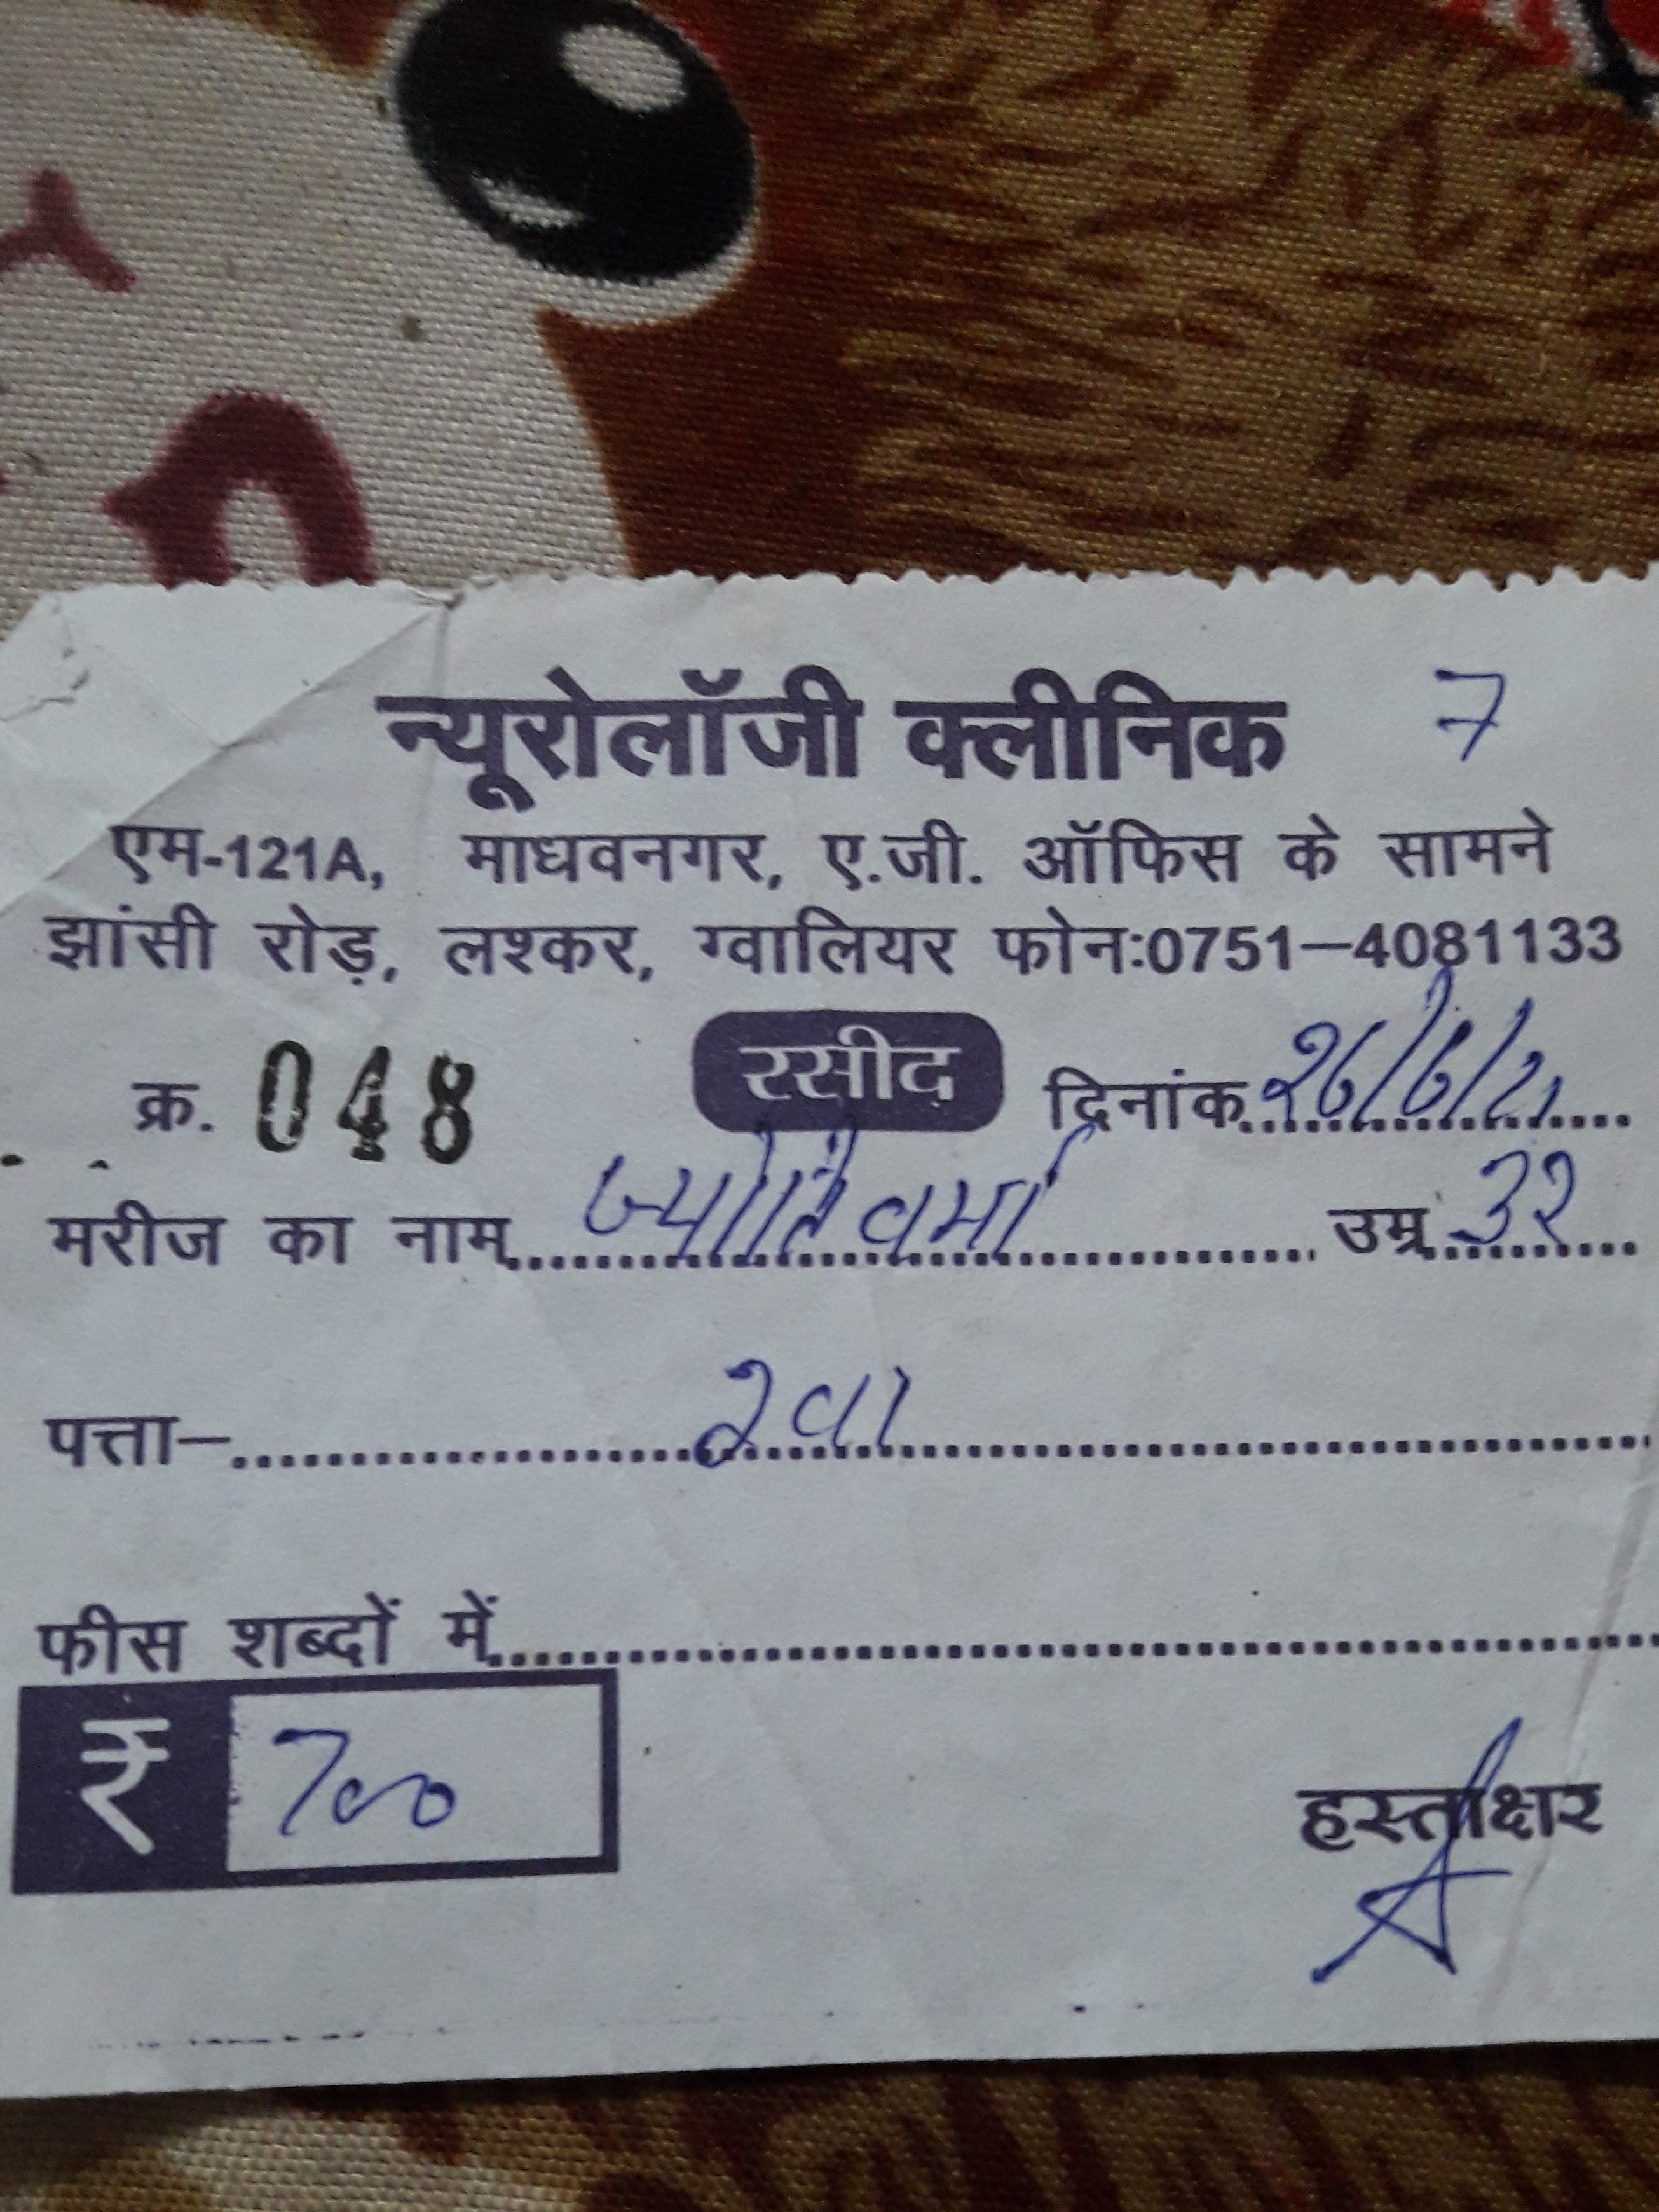 न्यूरोलॉजी क्लीनिक 7
एम-121A, माधवनगर, ए.जी. ऑफिस के सामने
झांसी रोड़, लश्कर, ग्वालियर फोन:0751-4081133
क्र. 048 रसीद दिनांक
मरीज का नाम ज्योति वर्मा उम्र ३२
पत्ता-
फीस शब्दों में
₹ 700
हस्ताक्षर